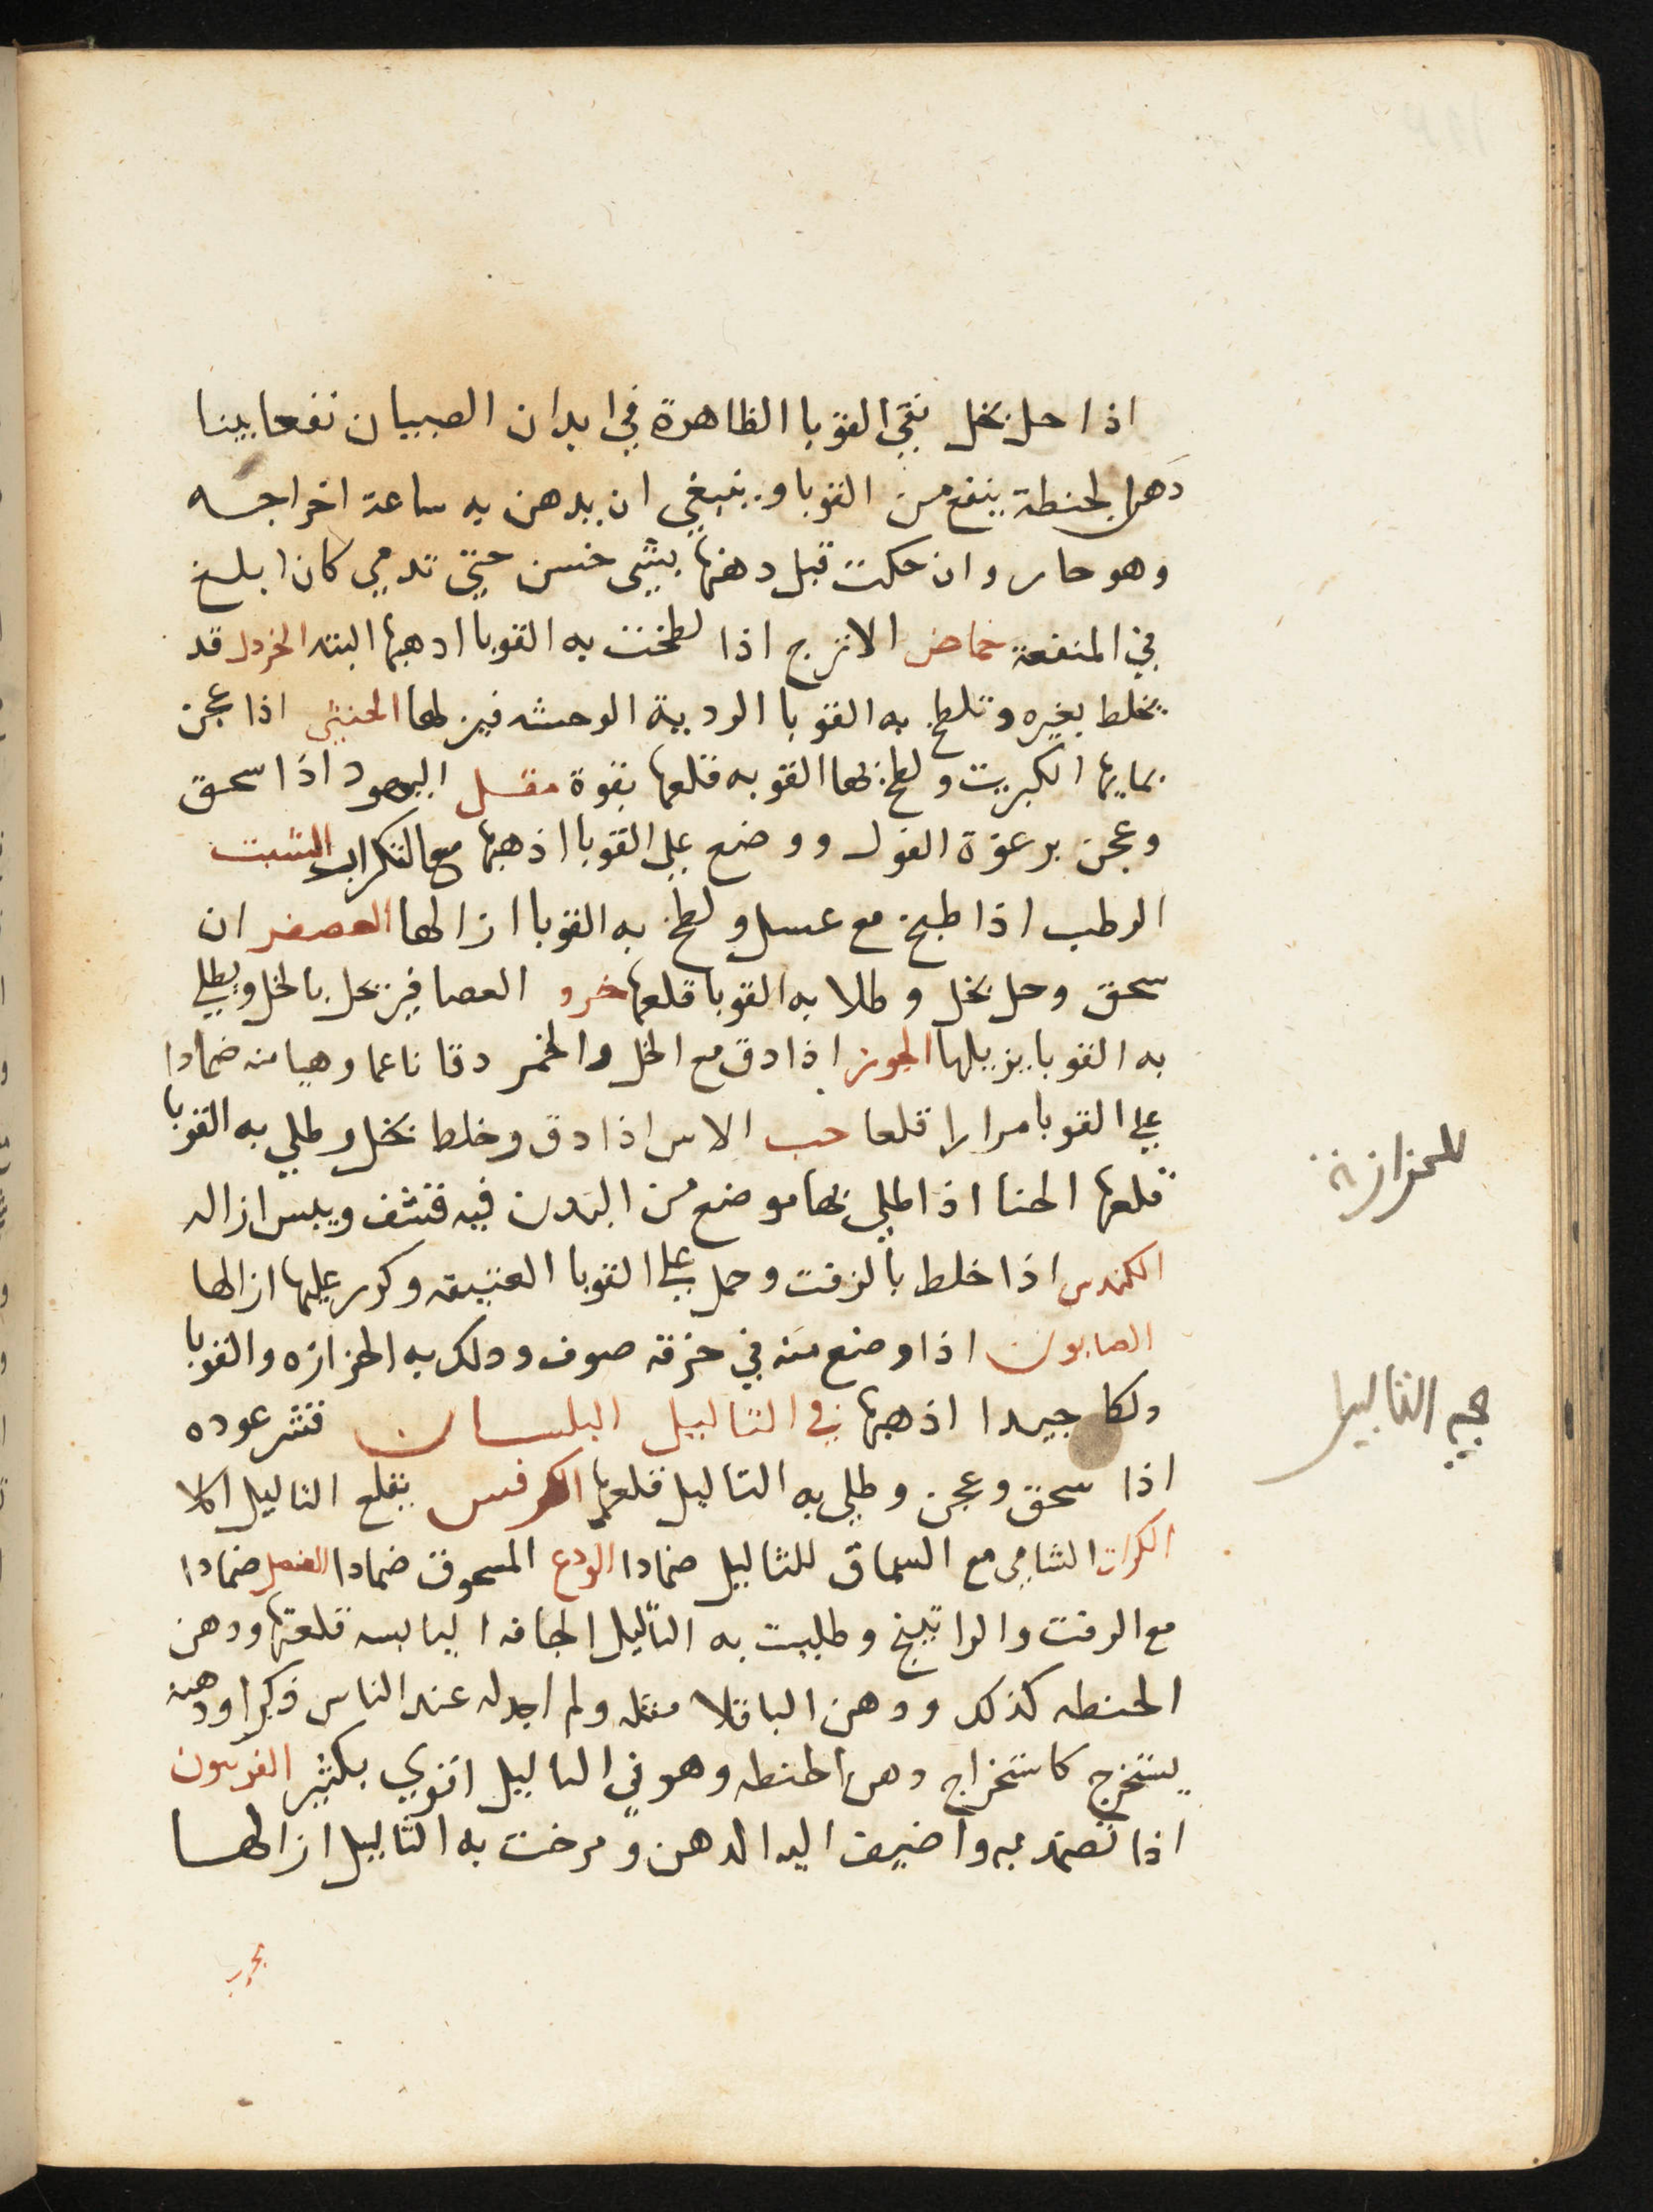 اذا حل بخل نقي القوبا الظاهرة في ابدان الصبيان نفعا بينا
دهن الحنطة ينفع من القوبا وينبغي ان يدهن به ساعة اخراجه
وهو حار وان حكت قبل دهنها بشي خشن حتي تدمي كان ابلغ
في المنفعة حماض الاترج اذا لطخت به القوبا ادهبها البته الخردل قد
يخلط بغيره وتلطخ به القوبا الردية الوحشه فيزلها الخنثي اذا عجن
بمايها الكبريت ولطخ بها القوبه قلعها بقوة مقل اليهود اذا سحق
وعجن برغوة الفول ووضع علي القوبا اذهبها مع التكرار الشبت
الرطب اذا طبخ مع عسل ولطخ به القوبا ازالها العصفر ان
سحق وحل بخل وطلا به القوبا قلعها خرو العصافير يحل بالخل ويطلي
به القوبا يزيلها الجوز اذا دق مع الخل والخمر دقا ناعما وهيا منه ضمادا
علي القوبا مرارا قلعا حب الاس اذا دق وخلط بخل وطلي به القوبا
قلعها الحنا اذا طلي بها موضع من البدن فيه قشف ويبس ازاله
الكندس اذا خلط بالزفت وحمل علي القوبا العتيقه وكرر عليها ازالها
الصابون اذا وضع منه في خرقه صوف ودلك به الحزازه والقوبا
دلكا جيدا اذهبها في الثاليل البلسان قشر عوده
اذا سحق وعجن وطلي به الثاليل قلعها الكرفس يقلع الثاليل اكلا
الكراث الشامي مع السماق للثاليل ضمادا الودع المسحوق ضمادا العنصل ضمادا
مع الزفت والراتينج وطليت به الثاليل الجافه اليابسه قلعتها ودهن
الحنطه كذلك ودهن الباقلا مثله ولم اجد له عند الناس ذكرا ودهنه
يستخرج كاستخراج دهن الحنطه وهو في الثاليل اقوي بكثير الفربيون
اذا تضمد به واضيف اليه الدهن ومرخت به الثاليل ازالها
للحزازة
الثاليل
مجرب